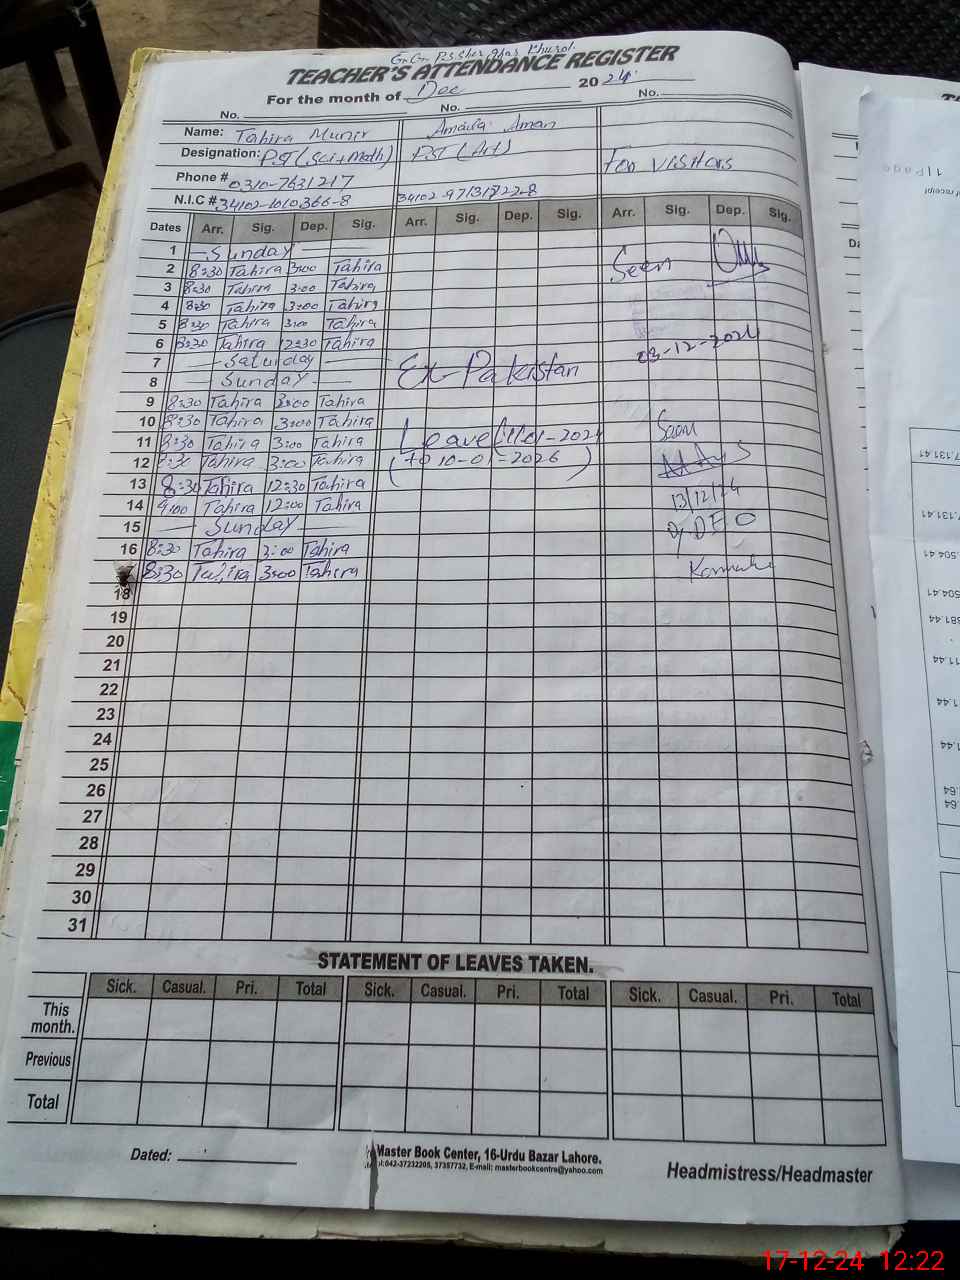 TEACHER'S ATTENDANCE REGISTER
For the month of Dec 2024
No. No. No.
Name: Tahira Munir Amara Aman
Designation: PST (Sci+Math) PST (Art) For Visitors
Phone # 0310-7631217
N.I.C # 34102-1010366-8
Dates Arr. Sig. Dep. Sig. Arr. Sig. Dep. Sig. Arr. Sig. Dep. Sig.
1 Sunday
2 8:30 Tahira 3:00 Tahira Seen
3 8:30 Tahira 3:00 Tahira
4 8:30 Tahira 3:00 Tahira
5 8:30 Tahira 3:00 Tahira
6 8:30 Tahira 12:30 Tahira 03-12-2024
7 Saturday Ex-Pakistan
8 Sunday
9 8:30 Tahira 3:00 Tahira
10 8:30 Tahira 3:00 Tahira Seen
11 8:30 Tahira 3:00 Tahira Leave
12 8:30 Tahira 3:00 Tahira to 10-01-2026)
13 8:30 Tahira 12:30 Tahira 13/12/24
14 9:00 Tahira 12:00 Tahira
15 Sunday Dy DEO
16 8:30 Tahira 3:00 Tahira
8:30 Tahira 3:00 Tahira
18
19
20
21
22
23
24
25
26
27
28
29
30
31
STATEMENT OF LEAVES TAKEN.
Sick. Casual. Pri. Total Sick. Casual. Pri. Total Sick. Casual. Pri. Total
This month.
Previous
Total
Dated:
Master Book Center, 16-Urdu Bazar Lahore.
042-37232205, 37357732, E-mail: masterbookcentre@yahoo.com
Headmistress/Headmaster
17-12-24 12:22